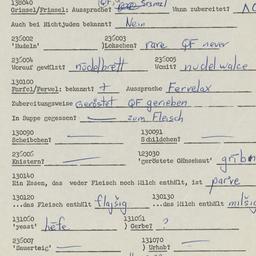 130040
Grinsel/Primsel: Aussprache? Wann zubereitet?
Auch bei Nichtjuden bekannt? Nein
236002 236003
'Nudeln' )Lokschen? rare QF never
236004 236005
Worauf gewälzt? nudelbrett Womit? nudelwalce
130100
Farfel/Fervel: bekannt? + Aussprache Fervelax
Zubereitungsweise Geröstet QF gerieben
In Suppe gegessen? zum Fleisch
130090 130091
Scheibchen? Schildchen?
236006 123030
Knistern? 'geröstete Gänsehaut'
130140
Ein Essen, das weder Fleisch noch Milch enthält, ist parve
130120 130130
...das Fleisch enthält flajšig ...das Milch enthält milšig
131060 131061
'yeast' hefe ) Gerbe? ?
236007 131070
'Sauerteig' ) Urhab?